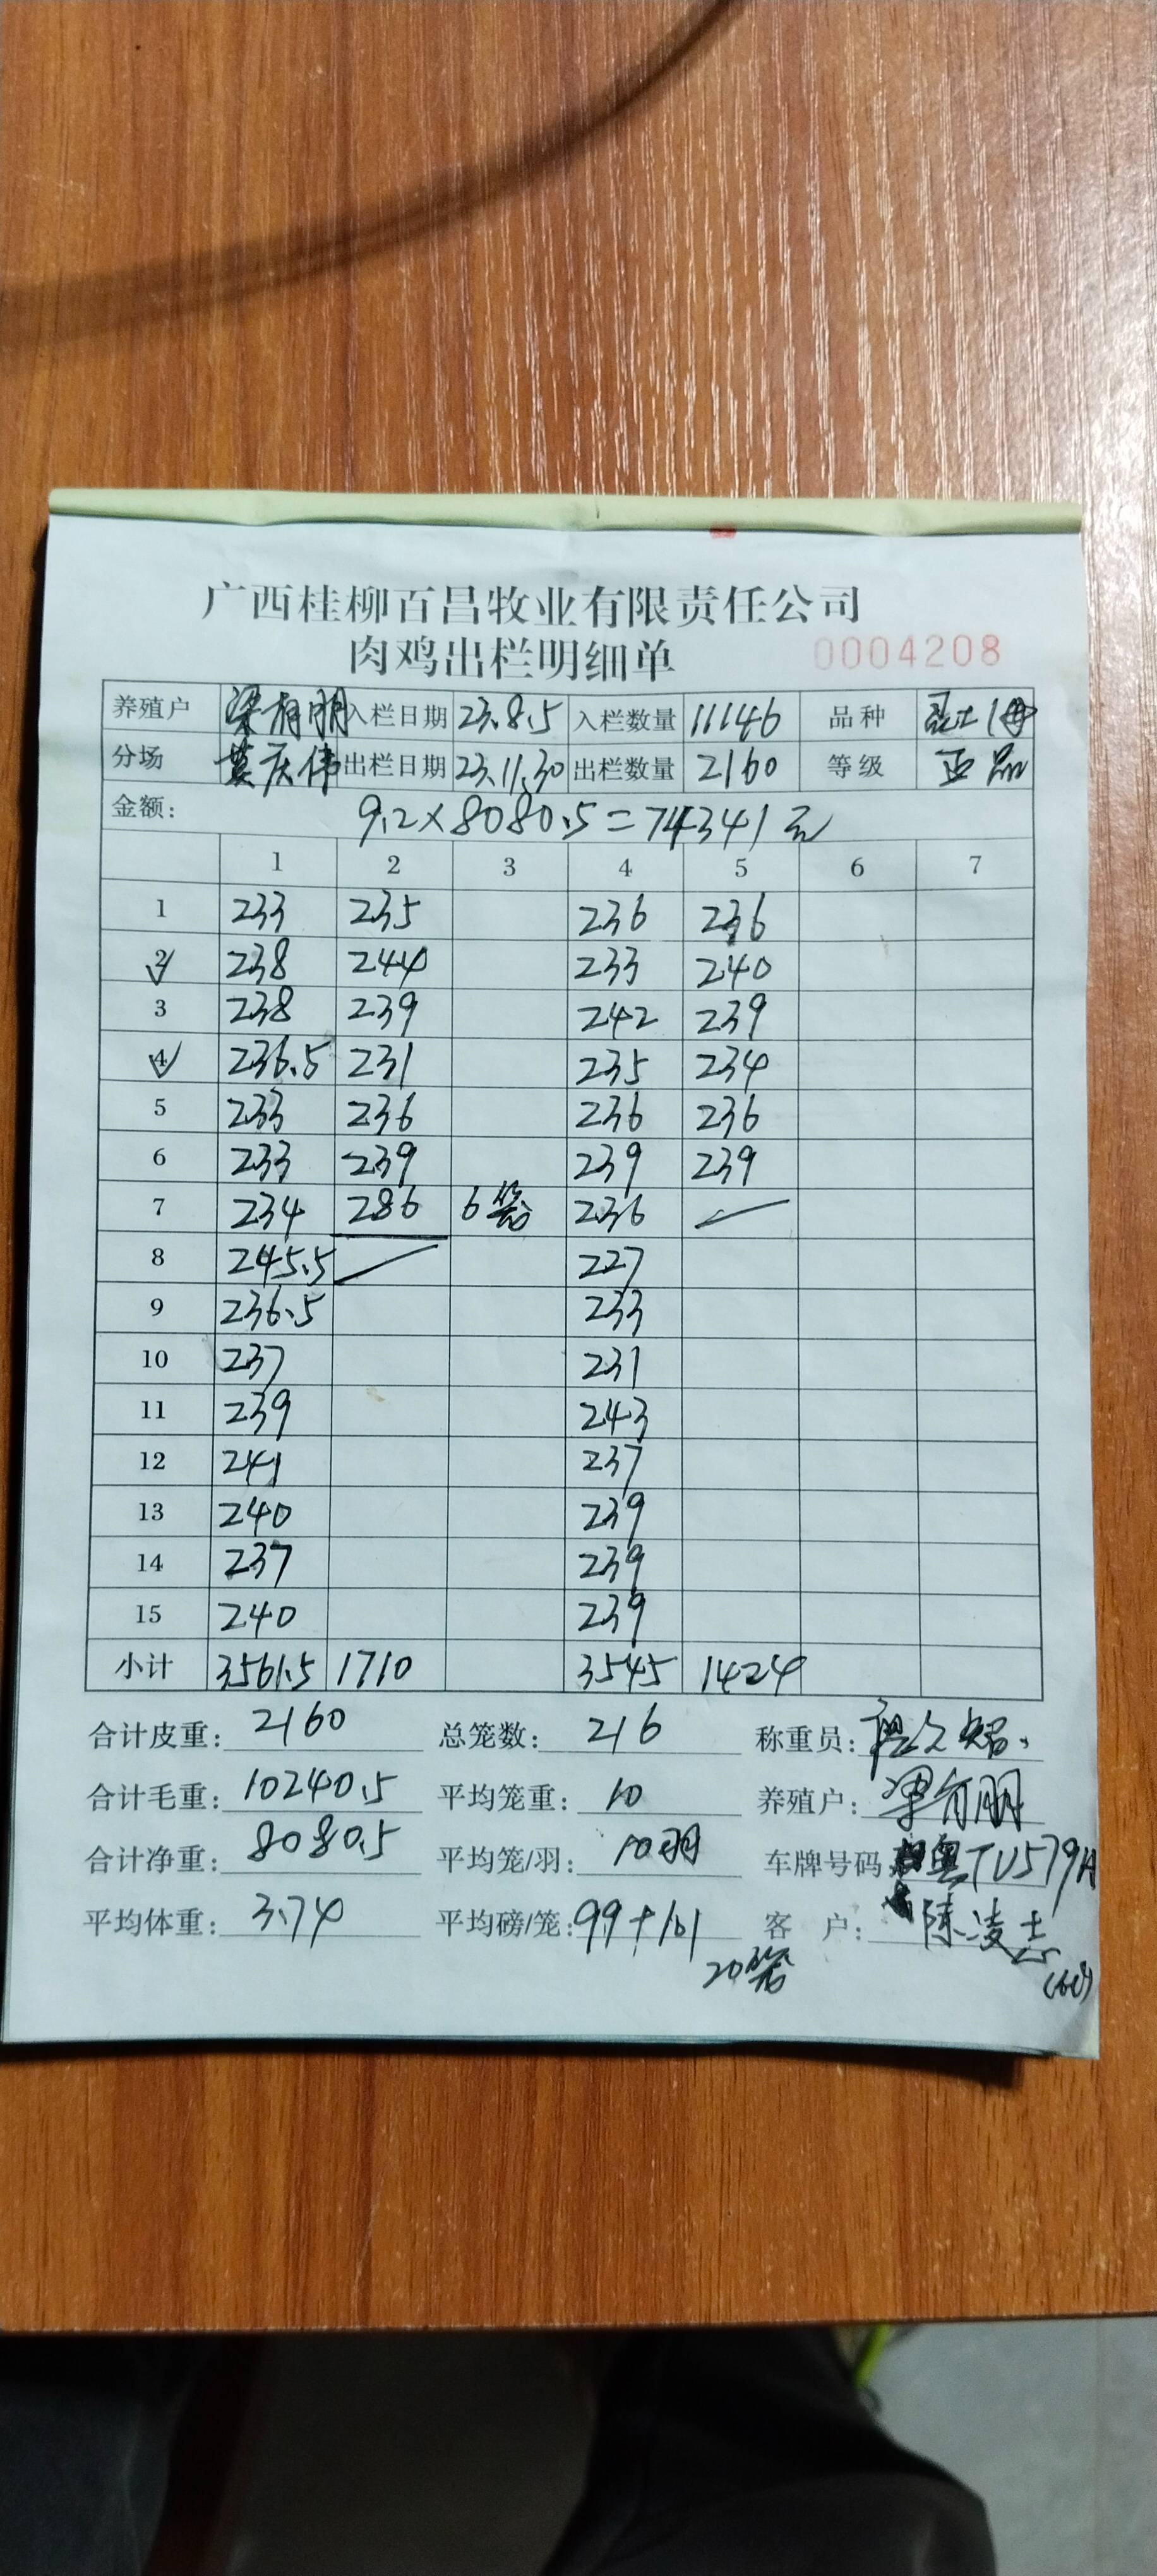 广西桂柳百昌牧业有限责任公司
肉鸡出栏明细单 0004208
养殖户 梁有朋 入栏日期 23.8.5 入栏数量 11146 品种
分场 莫庆伟 出栏日期 23.11.30 出栏数量 2160 等级 正品
金额: 9.2×8080.5=74341元
1 2 3 4 5 6 7
1 233 235 236 236
2 238 244 233 240
3 238 239 242 239
4 236.5 231 235 234
5 233 236 236 236
6 233 239 239 239
7 234 286 6笼 236
8 245.5 227
9 236.5 233
10 237 231
11 239 243
12 241 237
13 240 239
14 237 239
15 240 239
小计 3561.5 1710 3545 1424
合计皮重: 2160 总笼数: 216 称重员:
合计毛重: 10240.5 平均笼重: 10 养殖户: 梁有朋
合计净重: 8080.5 平均笼/羽: 10羽 车牌号码: 粤TU579A
平均体重: 3.74 平均磅/笼: 99+101 客 户: 陈凌志
20笼